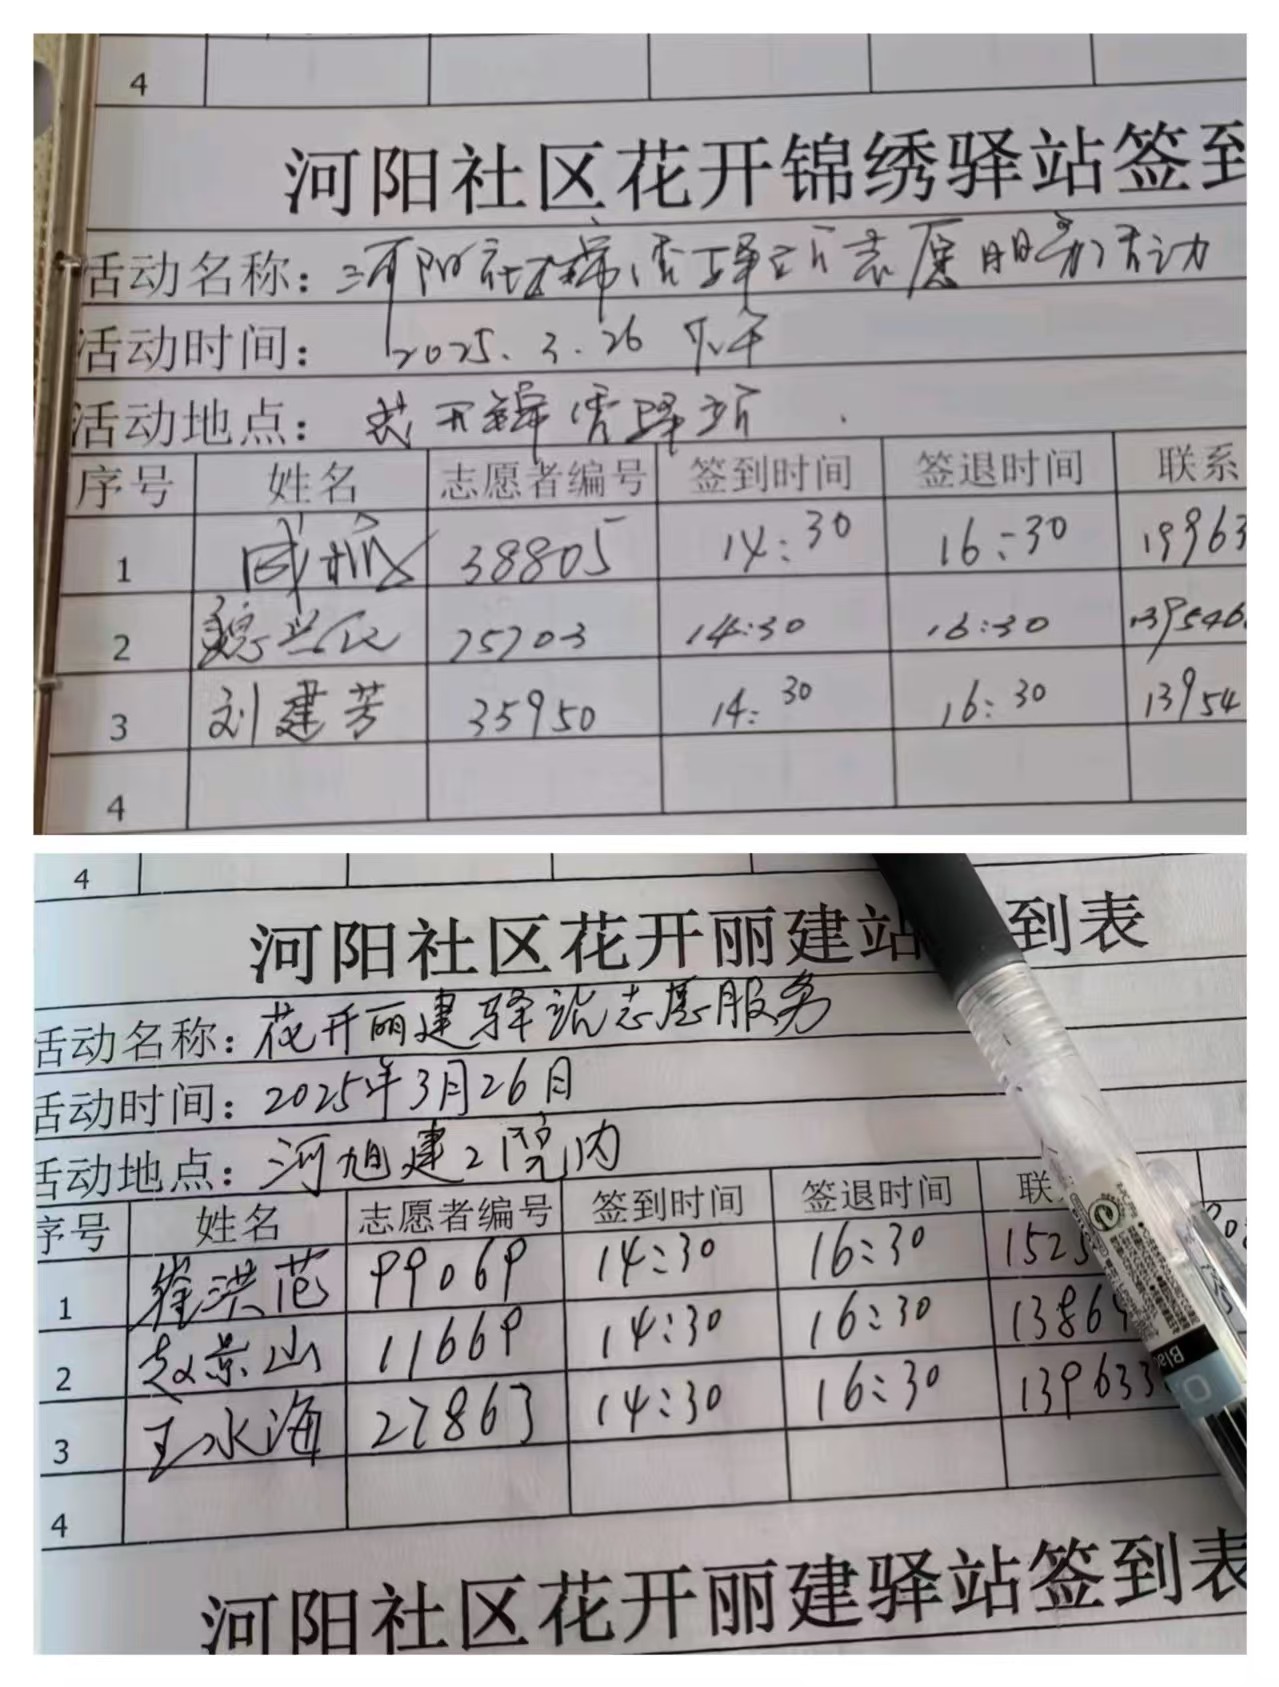 4
河阳社区花开锦绣驿站签到
活动名称：河阳社区锦秀驿站志愿服务活动
活动时间：2025.3.26 下午
活动地点：花开锦秀驿站
序号 姓名 志愿者编号 签到时间 签退时间 联系
1 38805 14:30 16:30 19963
2 魏兰 25703 14:30 16:30 139546
3 刘建芳 35950 14:30 16:30 13954
4
4
河阳社区花开丽建站 到表
活动名称：花开丽建驿站志愿服务
活动时间：2025年3月26日
活动地点：河旭建2院内
序号 姓名 志愿者编号 签到时间 签退时间 联
1 崔洪范 99069 14:30 16:30 1525
2 赵京山 11669 14:30 16:30 13864
3 王水海 27863 14:30 16:30 139633
4
河阳社区花开丽建驿站签到表